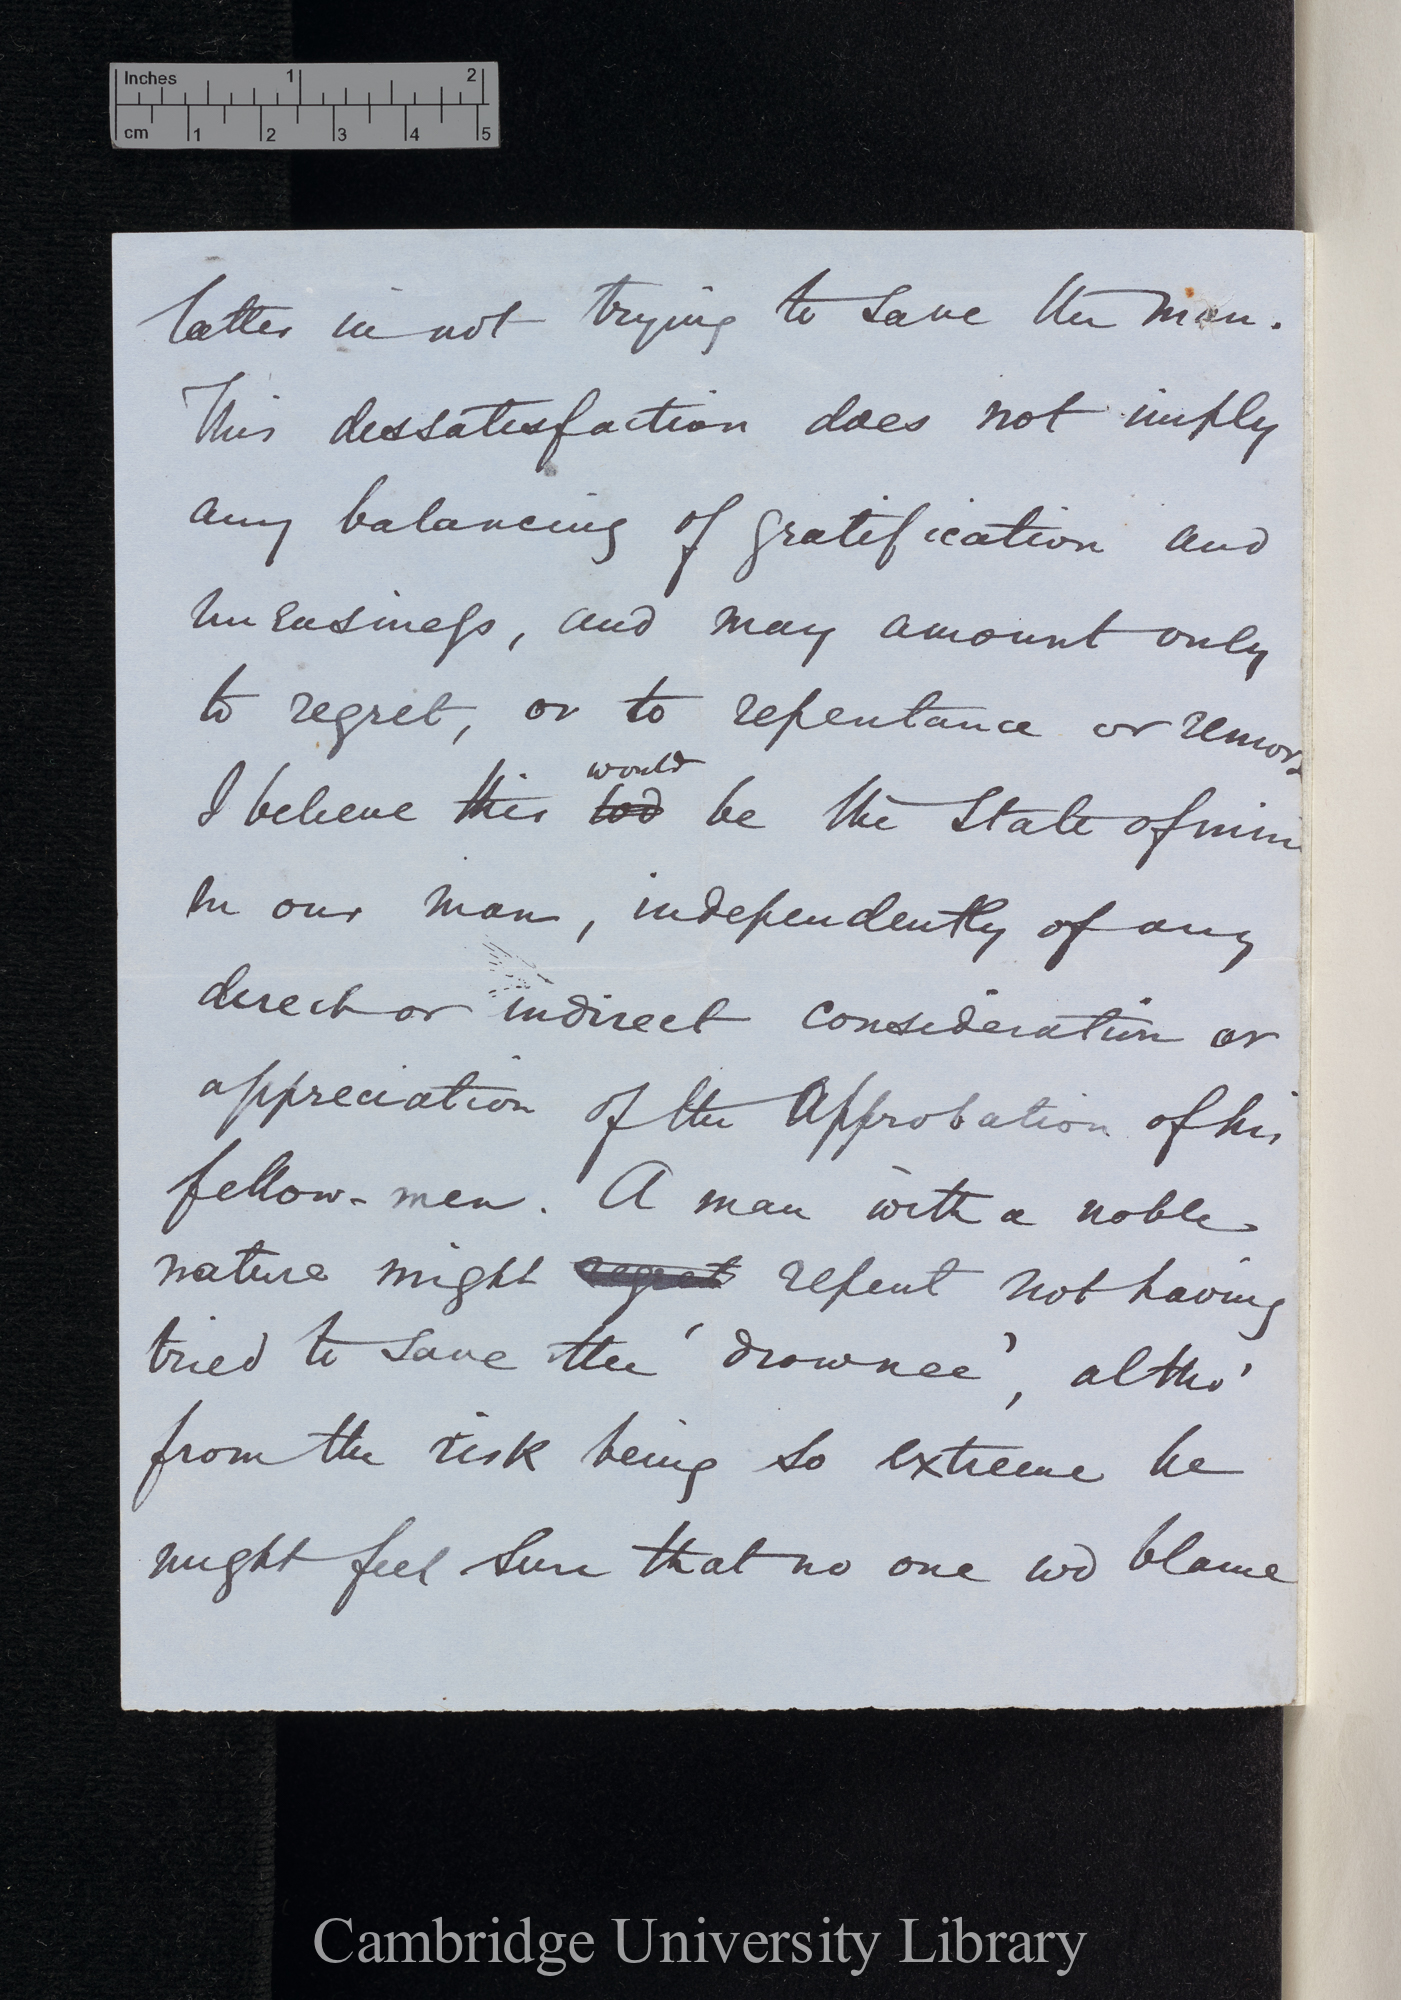 Inches 1 2
cm 1 2 3 4 5
latter in not trying to save the man.
This dissatisfaction does not imply
any balancing of gratification and
uneasiness, and may amount only
to regret, or to repentance or remors
I believe this would be the state of min
in our man, independently of any
direct or indirect consideration or
appreciation of the approbation of his
fellow-men. A man with a noble
nature might regret repent not having
tried to save the 'drownee', altho'
from the risk being so extreme he
might feel sure that no one wd blame
Cambridge University Library